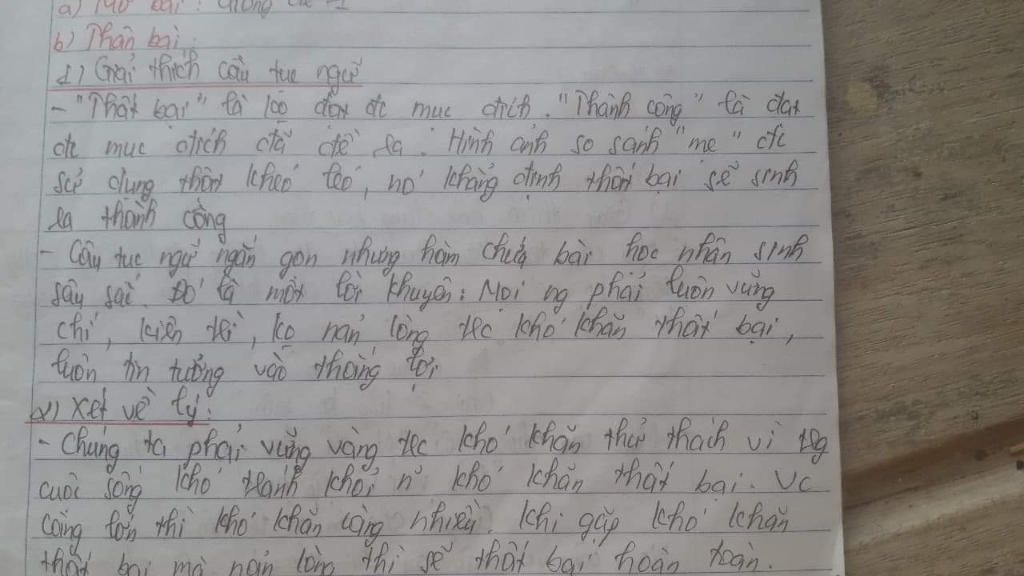 a) Mở bài :
b) Thân bài :
1) Giải thích câu tục ngữ
- "Thất bại" là ko đạt đc mục đích. "Thành công" là đạt
đc mục đích đã đề ra. Hình ảnh so sánh "mẹ" đc
sử dụng thật khéo léo, nó khẳng định thất bại sẽ sinh
ra thành công
- Câu tục ngữ ngắn gọn nhưng hàm chứa bài học nhân sinh
sâu sắc. Đó là một lời khuyên: Mọi ng phải luôn vững
chí, kiên trì, ko nản lòng trc khó khăn thất bại,
luôn tin tưởng vào thắng lợi
2) Xét về lý:
- Chúng ta phải vững vàng trc khó khăn thử thách vì trg
cuộc sống khó tránh khỏi n~ khó khăn thất bại. Vc
càng lớn thì khó khăn càng nhiều. Khi gặp khó khăn
thất bại mà nản lòng thì sẽ thất bại hoàn toàn.